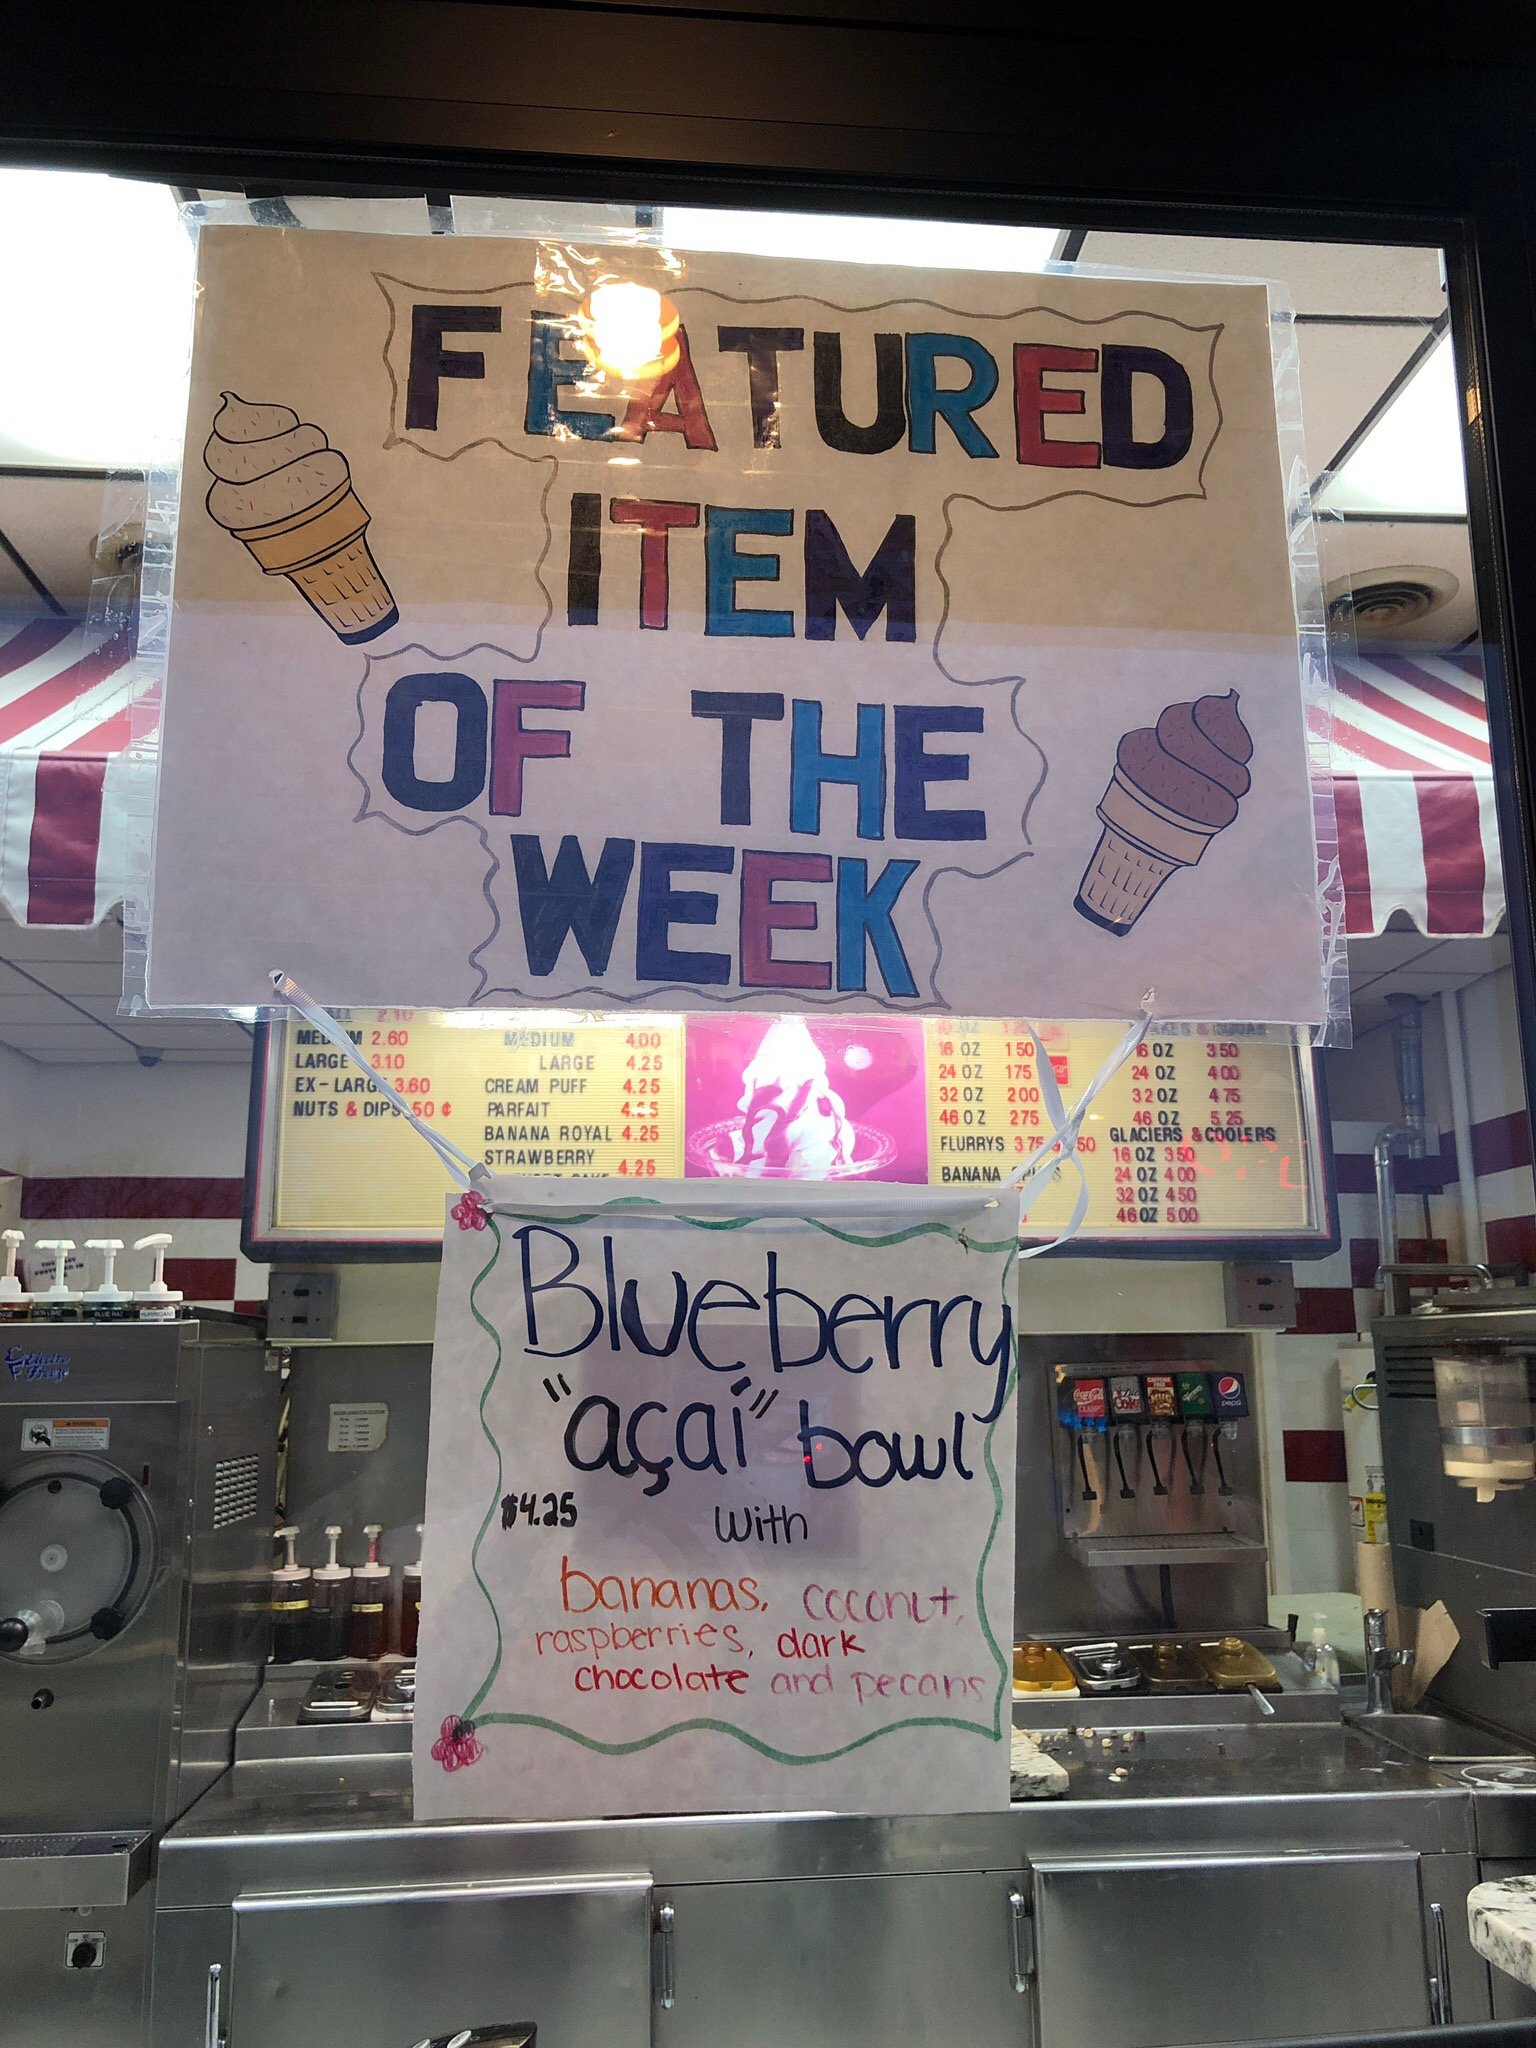 FEATURED
ITEM
OF THE
WEEK
2.10
MEDIUM 2.60
LARGE 3.10
EX-LARGE 3.60
NUTS & DIPS .50 ¢
MEDIUM 4.00
LARGE 4.25
CREAM PUFF 4.25
PARFAIT 4.25
BANANA ROYAL 4.25
STRAWBERRY
4.25
16 OZ 150
24 OZ 175
32 OZ 200
46 OZ 275
FLURRYS 375
50
BANANA
16 OZ 350
24 OZ 400
32 OZ 475
46 OZ 5.25
GLACIERS & COOLERS
16 OZ 350
24 OZ 400
32 OZ 450
46 OZ 500
Blueberry
"açaí" bowl
$4.25 with
bananas, coconut,
raspberries, dark
chocolate and pecans
Electro
Freeze
WARNING
BLUE RAZ
HURRICANE
Coca-Cola
CLASSIC
Diet
Coke
MUG
pepsi